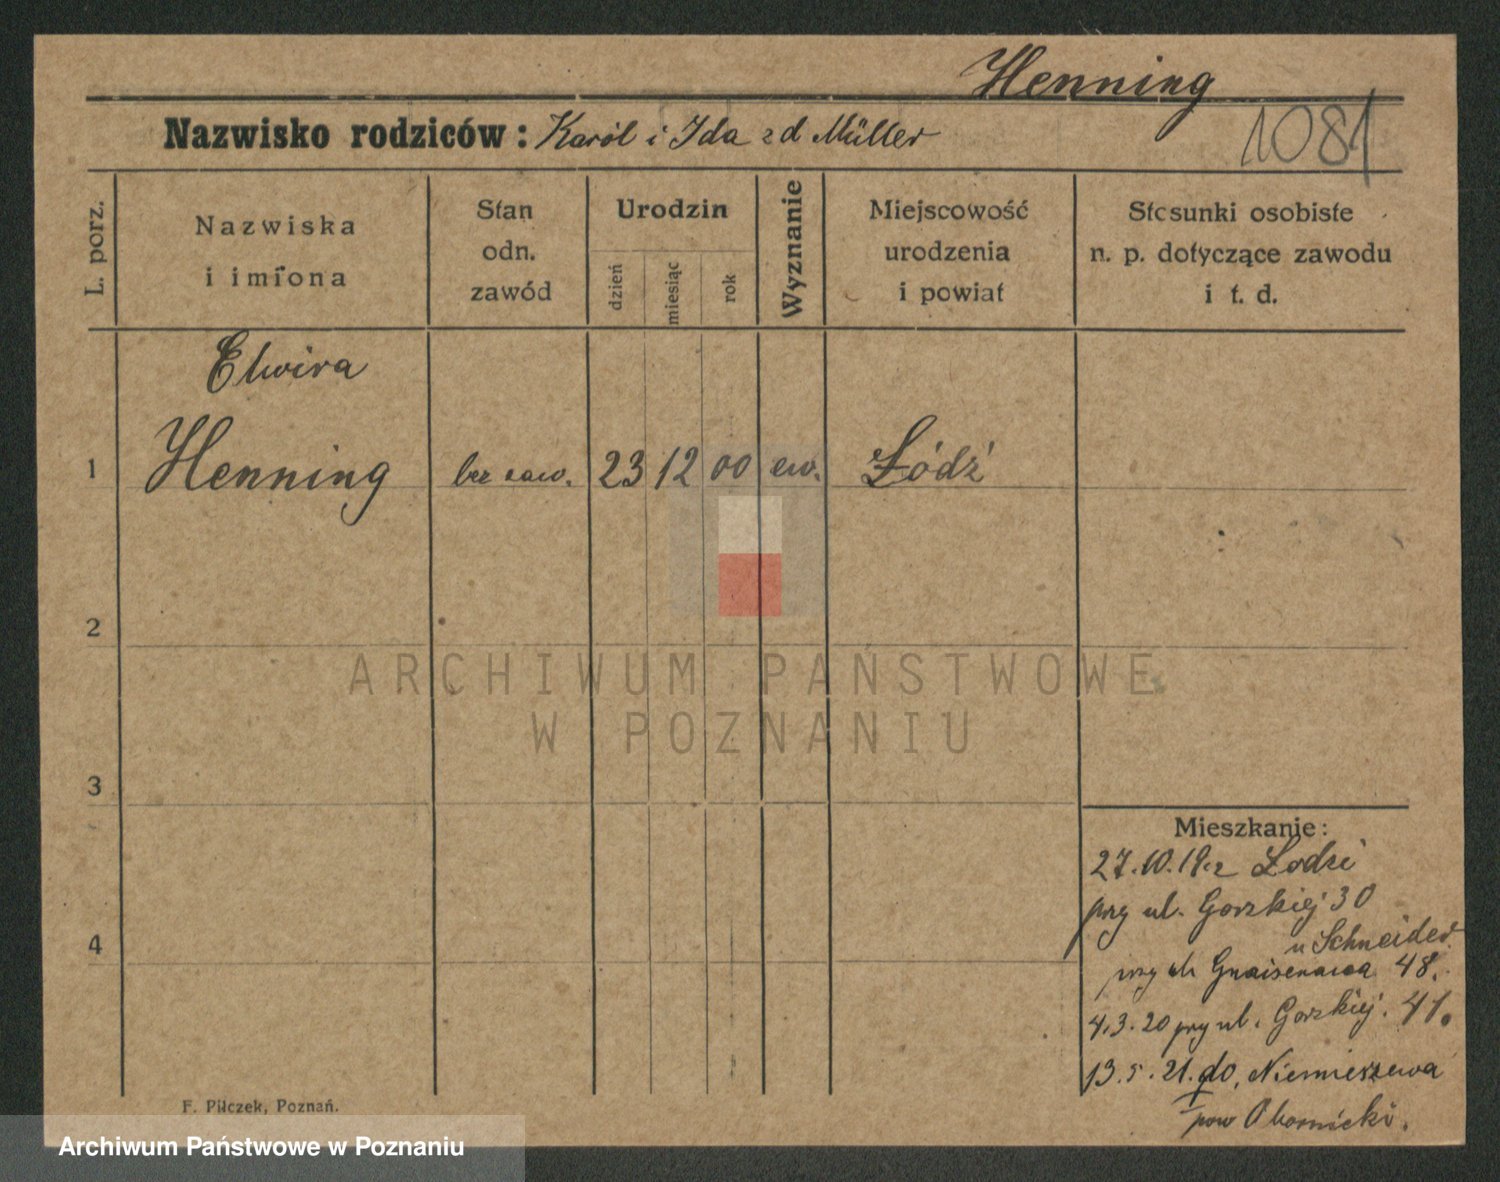 Henning
Nazwisko rodziców: Karól i Ida zd Müller
1081
L. porz.
Nazwiska
i imiona
Stan
odn.
zawód
Urodzin
dzień
miesiąc
rok
Wyznanie
Miejscowość
urodzenia
i powiat
Stosunki osobiste
n. p. dotyczące zawodu
i t. d.
Elwira
1 Henning bez zaw. 23 12 00 ew. Łódź
2
ARCHIWUM PAŃSTWOWE
W POZNANIU
3
Mieszkanie:
27.10.19. z Łodzi
przy ul. Gorzkiej 30
4
u Schneider
przy ul. Gnaisenawa 48.
4.3.20 przy ul. Gorzkiej. 41.
13.5.21. do, Niemieszewa
pow Obornicki.
F. Pilczek, Poznań.
Archiwum Państwowe w Poznaniu